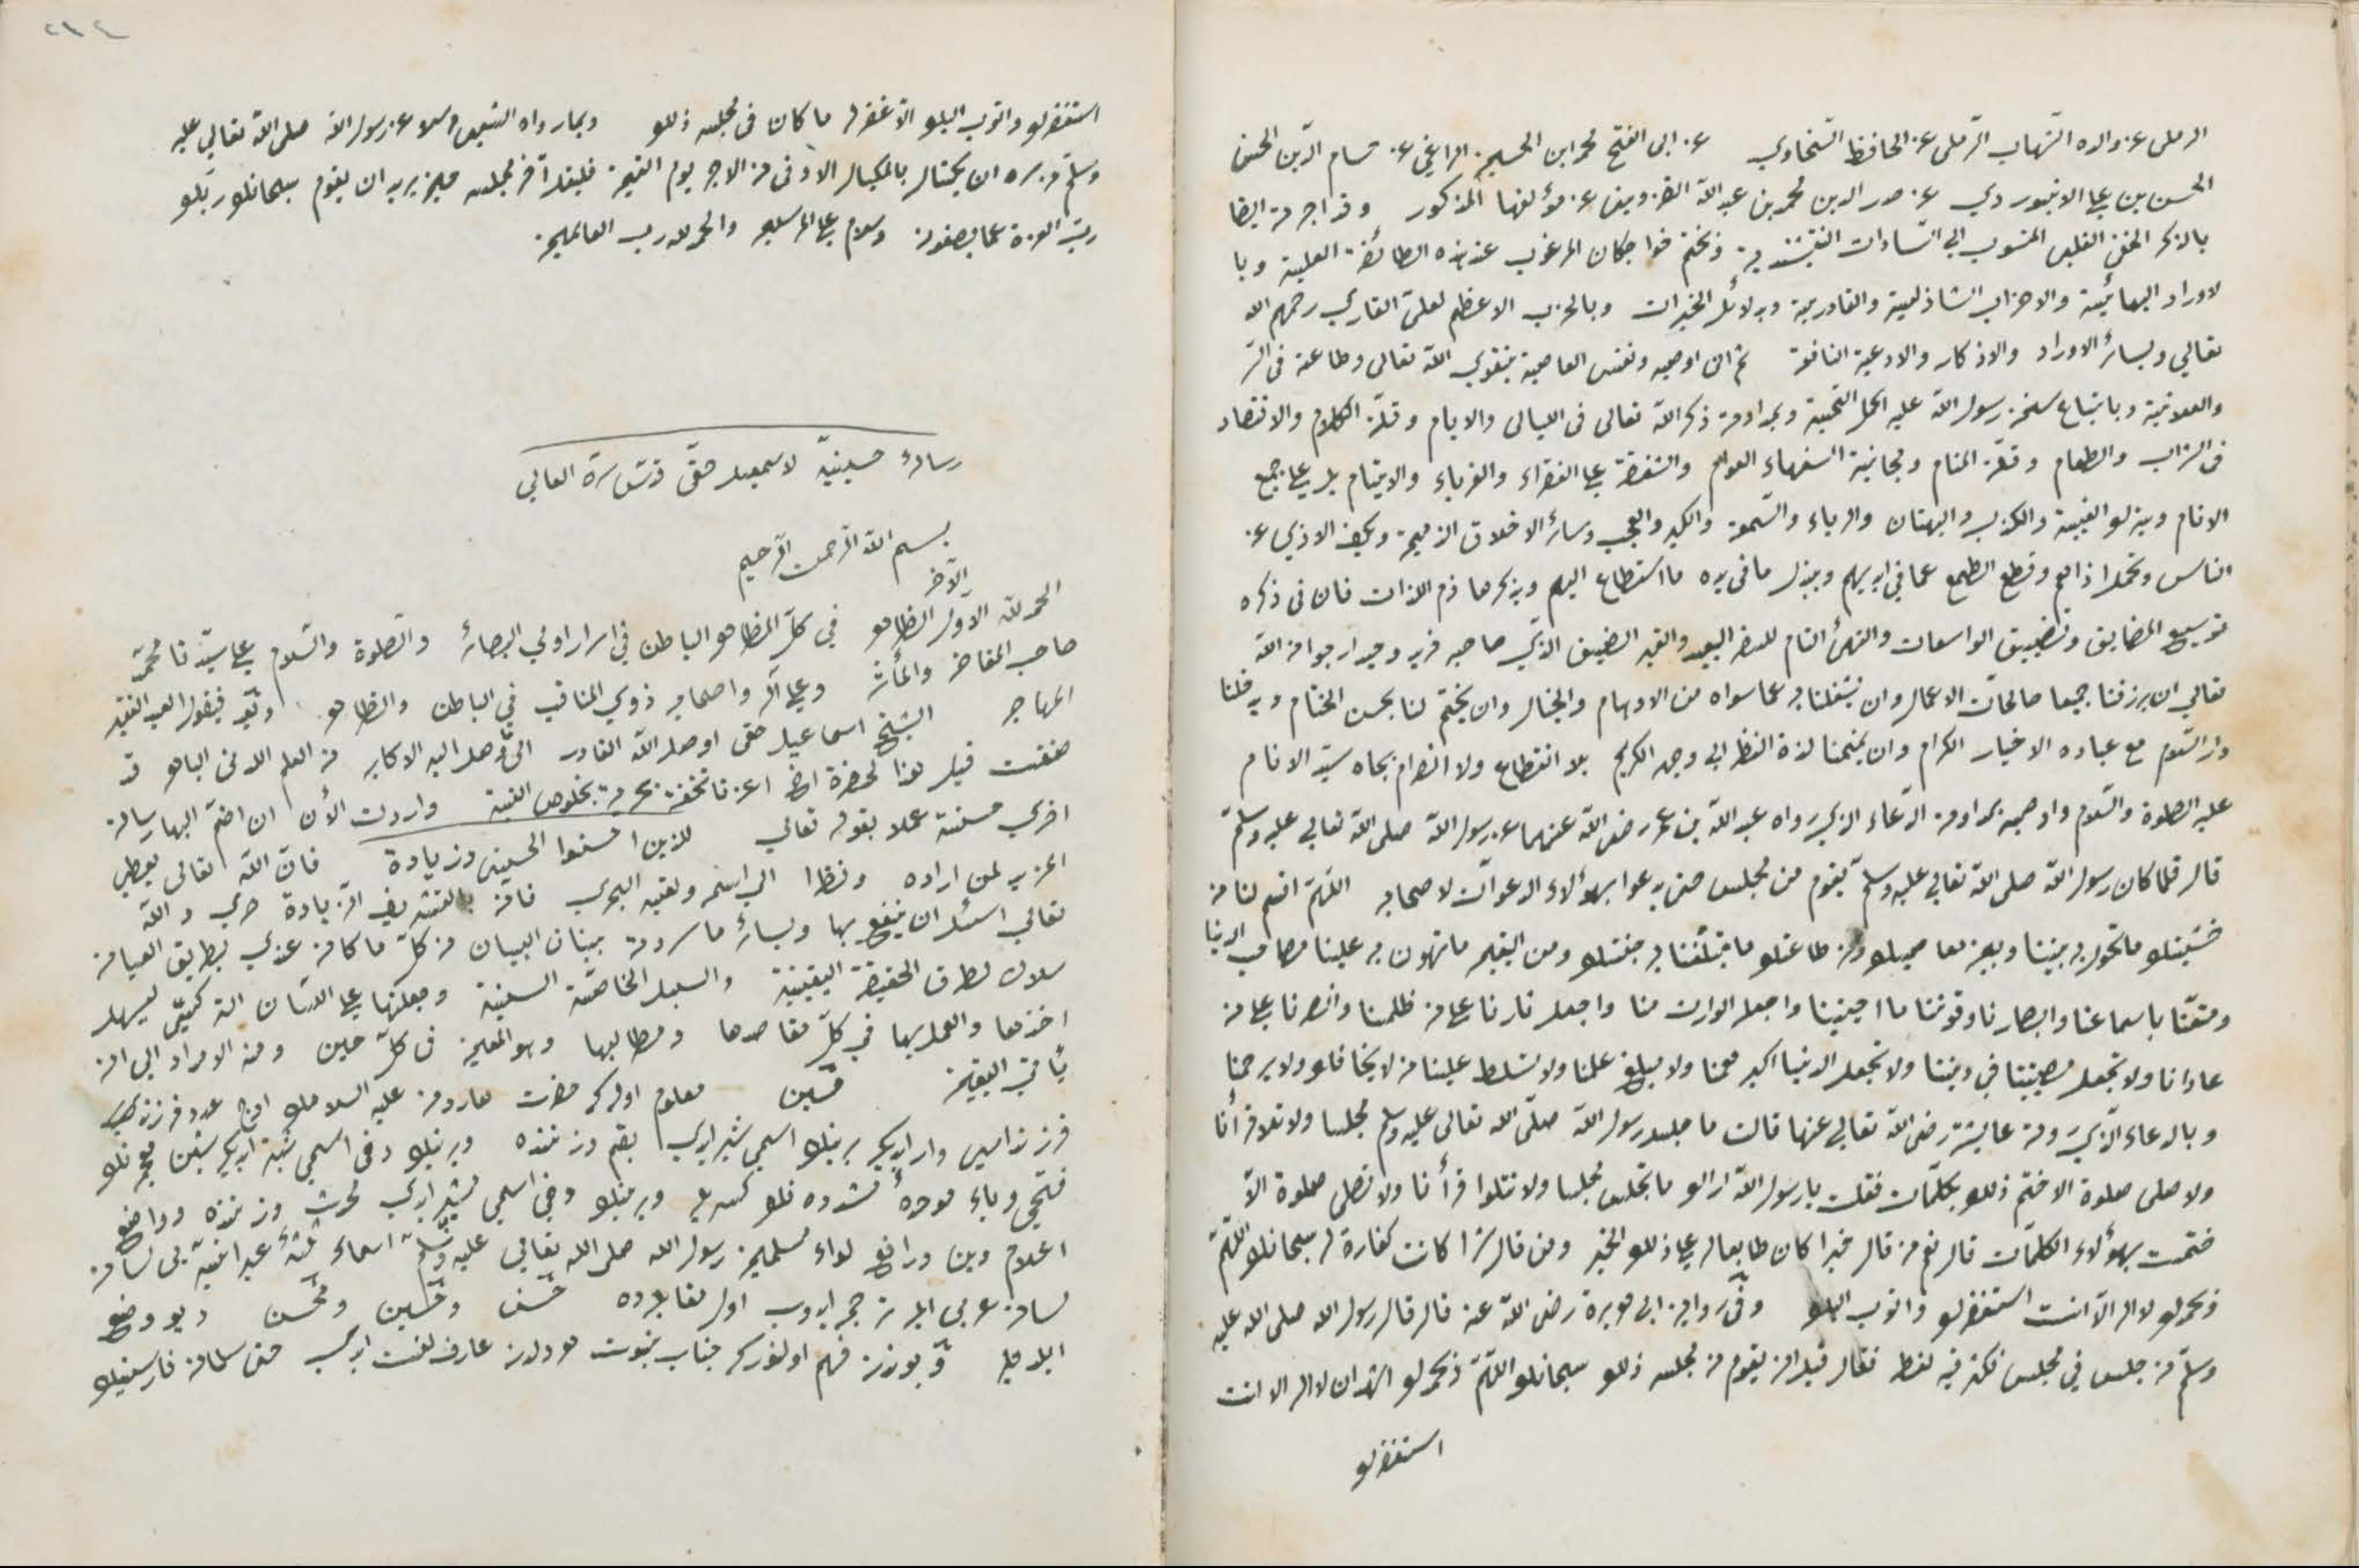 الرملى عن والده الشهاب الرملى عن الحافظ السخاوي عن ابى الفتح محمد ابن الحسين المراغي عن حسام الدين الحسن
الحسن بن علي الابيوردي عن صدر الدين محمد بن عبد الله القزوينى عن مؤلفها المذكور وقد اجزت ايضا
بالذكر الخفى القلبى المنسوب الى السادات النقشبندية وبختم خواجكان المرغوب عند هذه الطائفة العلية وبا
لاوراد البهائية والاحزاب الشاذلية والقادرية وبدلائل الخيرات وبالحزب الاعظم لعلي القاري رحمهم الله
تعالى وبسائر الاوراد والاذكار والادعية النافعة ثم انى اوصيه ونفسى العاصية بتقوي الله تعالى وطاعته فى السر
والعلانية وباتباع سنن رسول الله عليه اكمل التحية وبمداومة ذكر الله تعالى فى الليالى والايام وقلة الكلام والاقتصاد
فى الشراب والطعام وقلة المنام ومجانبة السفهاء العوام والشفقة على الفقراء والغرباء والايتام بل على جميع
الانام وبترك الغيبة والكذب والبهتان والرياء والسمعة والكبر والعجب وسائر الاخلاق الذميمة وبكف الاذي عن
الناس وتحمل اذاهم وقطع الطمع عما في ايديهم وببذل ما فى يده ما استطاع اليهم وبذكر هاذم اللذات فان فى ذكره
توسيع المضايق وتضييق الواسعات والتهيأ التام للسفر البعيد والقبر الضيق الذي صاحبه فريد وحيد ارجو من الله
تعالى ان يرزقنا جميعا صالحات الاعمال وان يشغلنا به عما سواه من الاوهام والخيال وان يختم لنا بحسن الختام ويدخلنا
دار السلام مع عباده الاخيار الكرام وان يمنحنا لذة النظر الى وجهه الكريم بلا انقطاع ولا انصرام بجاه سيد الانام
عليه الصلوة والسلام واوصيه بمداومة الدعاء الذي رواه عبد الله بن عمر رضى الله عنهما عن رسول الله صلى الله تعالى عليه وسلم
قال قلما كان رسول الله صلى الله تعالى عليه وسلم يقوم من مجلس حتى يدعوا بهؤلاء الدعوات لاصحابه اللهم اقسم لنا من
خشيتك ما تحول به بيننا وبين معاصيك ومن طاعتك ما تبلغنا به جنتك ومن اليقين ما تهون به علينا مصائب الدنيا
ومتعنا باسماعنا وابصارنا وقوتنا ما احييتنا واجعل الوارث منا واجعل ثارنا على من ظلمنا وانصرنا على من
عادانا ولا تجعل مصيبتنا في ديننا ولا تجعل الدنيا اكبر همنا ولا مبلغ علمنا ولا تسلط علينا من لا يخافك ولا يرحمنا
وبالدعاء الذي روته عائشة رضى الله تعالى عنها قالت ما جلس رسول الله صلى الله تعالى عليه وسلم مجلسا ولا تلا قرأنا
ولا صلى صلوة الا ختم ذلك بكلمات فقلت يا رسول الله اراك ما تجلس مجلسا ولا تتلوا قرأنا ولا تصلى صلوة الا
ختمت بهؤلاء الكلمات قال نعم من قال خيرا كان طابعا له على ذلك الخير ومن قال شرا كانت كفارة له سبحانك اللهم
وبحمدك لا اله الا انت استغفرك واتوب اليك وفى رواية ابى هريرة رضى الله عنه قال قال رسول الله صلى الله عليه
وسلم من جلس في مجلس فكثر فيه لغطه فقال قبل ان يقوم من مجلسه ذلك سبحانك اللهم وبحمدك اشهد ان لا اله الا انت
استغفرك
استغفرك واتوب اليك الا غفر له ما كان فى مجلسه ذلك وبما رواه الشعبى مرسلا عن رسول الله صلى الله تعالى عليه
وسلم من سره ان يكتال بالمكيال الاوفى من الاجر يوم القيمة فليقل آخر مجلسه حين يريد ان يقوم سبحانك ربك
رب العزة عما يصفون وسلام على المرسلين والحمد لله رب العالمين
رسالۀ حسينيه لاسمعيل حقى قدس سره العالي
بسم الله الرحمن الرحيم
الحمد لله الاول الآخر الظاهر في كل المظاهر الباطن في اسرار اولي البصائر والصلوة والسلام على سيدنا محمد
صاحب المفاخر والمآثر وعلى آله واصحابه ذوي المناقب في الباطن والظاهر وبعد فيقول العبد الفقير
المهاجر الشيخ اسماعيل حقى اوصله الله القادر الى ما وصل اليه الاكابر من العلم اللدنى الباهر قد
صنفت قبل هذا لحضرة اخ اعزنا تحفة بحرية بخلوص النية واردت الأن ان اضم اليها رسالة
اخري حسنة عملا بقوله تعالي للذين احسنوا الحسنى وزيادة فان الله تعالى يعطى
المزيد لمن اراده ونظرا الى اسمه ولقبه البحري فانه بالتشريف الزيادة حري والله
تعالي اسئل ان ينفع بها وبسائر ما سردته ببنان البيان من كل ما كان عندي بطريق العيان
سلاك طرق الحقيقة اليقينية والسبل الخاصة السنية وجعلتها على اللسان التركي ليسهل
اخذها والعمل بها في كل مقاصدها ومطالبها وهو المعين فى كل حين ومنه الامداد الى ان
يأتى اليقين حسين معلوم اوله كه حضرت هارون عليه السلامك اوچ عدد فرزند
فرزنداسى وار ايدى برينك اسمى شبر ايدي بقم وزننده وبرينك دخى اسمى شبير ايدى شين معجمه نك
فتحى وباء موحدۀ مشدده نك كسريله وبرينك دخى اسمى مشبر ايدي محدث وزننده وواضع
اعلام دين ورافع لواء مسلمين رسول الله صلى الله تعالي عليه وسلم اسماء ثلثۀ عبرانيه يى لسان
لسان عربى ايله ترجمه ايدوب اول مقابله ده حسن وحسين ومحسن ديو وضع
ايلديلر وبوندن فهم اولنور كه جناب نبوت هر دلدن عارف لغت ايدي حتى سلمان فارسينك